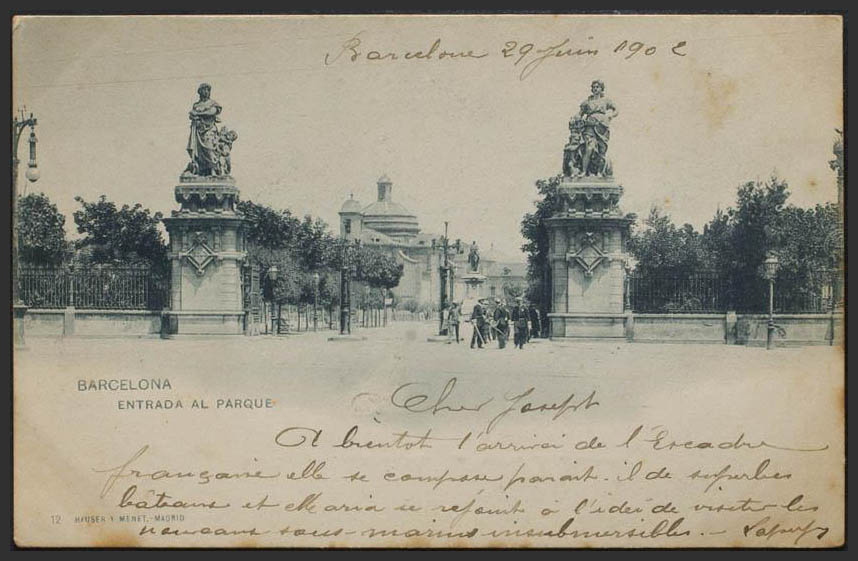 Barcelone 29 Juin 1902
BARCELONA
ENTRADA AL PARQUE
Cher Joseph
A bientôt l'arrivéi de l'Escadre
française elle se compose parait-il de superbes
bâteaux et Maria se rejouit à l'ideé de visiter les
nouveaux sous-marins insubmersibles. -
12 HAUSER Y MENET.-MADRID